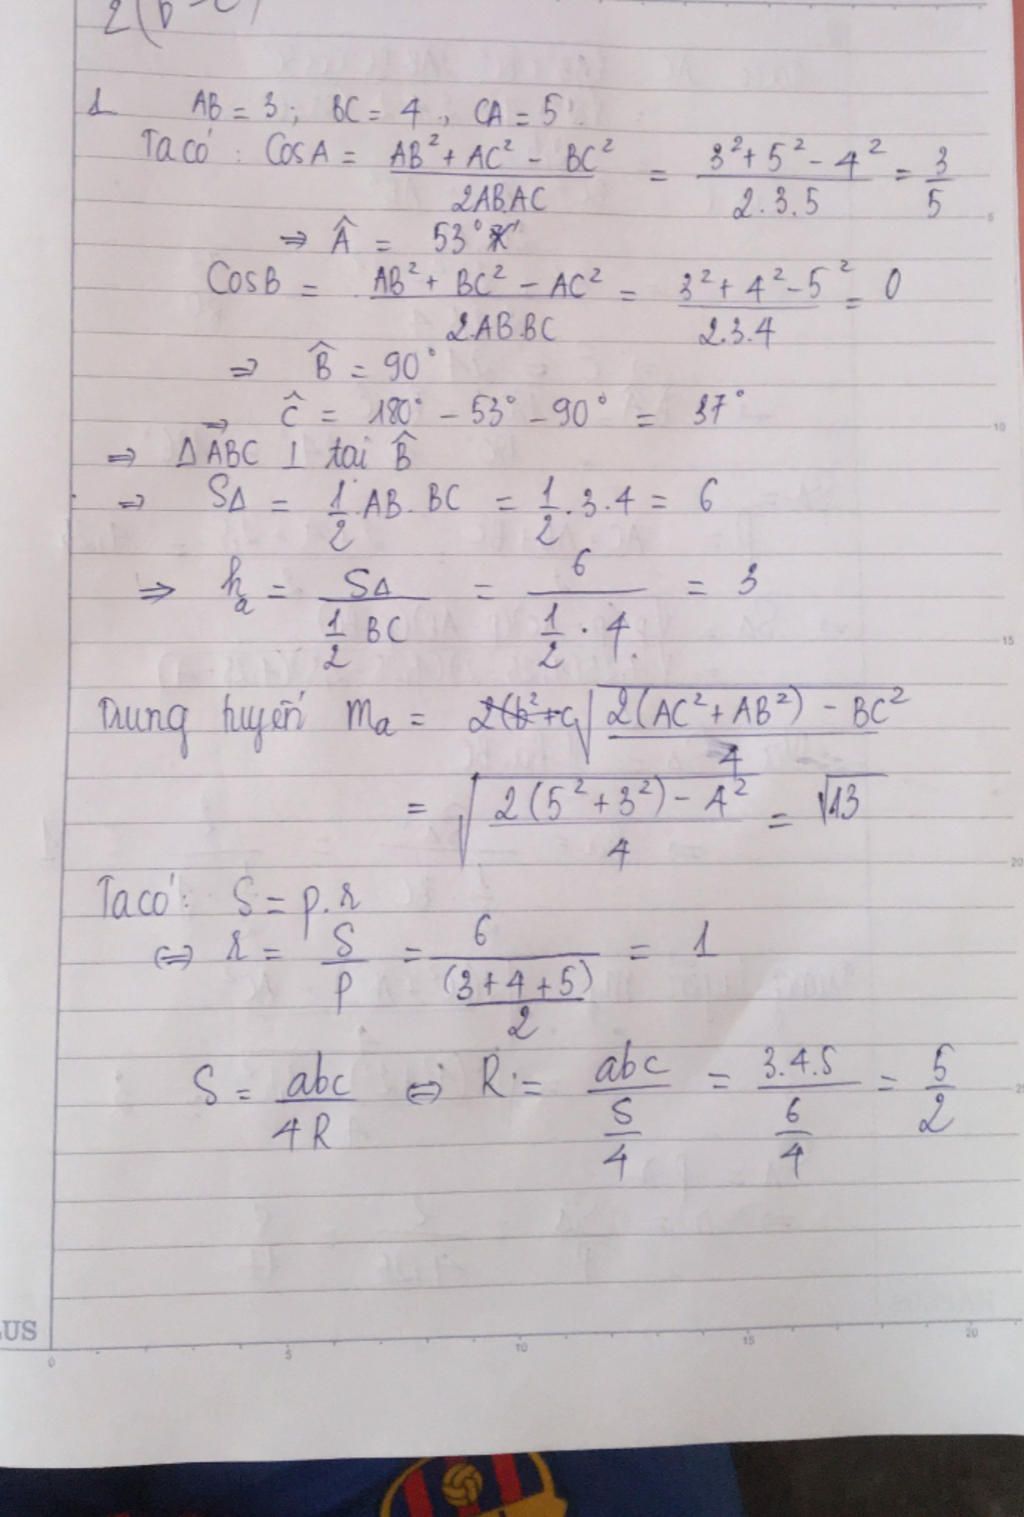 2(b - c)
1 AB = 3; BC = 4, CA = 5.
Ta có: CosA = \frac{AB² + AC² - BC²}{2AB.AC} = \frac{3² + 5² - 4²}{2.3.5} = \frac{3}{5}
⇒ Â = 53°
CosB = \frac{AB² + BC² - AC²}{2.AB.BC} = \frac{3² + 4² - 5²}{2.3.4} = 0
⇒ B̂ = 90°
⇒ Ĉ = 180° - 53° - 90° = 37°
⇒ ΔABC ⊥ tai B̂
⇒ SΔ = \frac{1}{2}.AB.BC = \frac{1}{2}.3.4 = 6
⇒ hₐ = \frac{SΔ}{\frac{1}{2}BC} = \frac{6}{\frac{1}{2}.4} = 3
Trung tuyến mₐ = 2(b²+c \sqrt{\frac{2(AC² + AB²) - BC²}{4}}
= \sqrt{\frac{2(5² + 3²) - 4²}{4}} = √13
Ta có: S = p.r
⇔ r = \frac{S}{p} = \frac{6}{\frac{(3+4+5)}{2}} = 1
S = \frac{abc}{4R} ⇔ R = \frac{abc}{\frac{S}{4}} = \frac{3.4.5}{\frac{6}{4}} = \frac{5}{2}
LUS
0 5 10 15 20
5
10
15
20